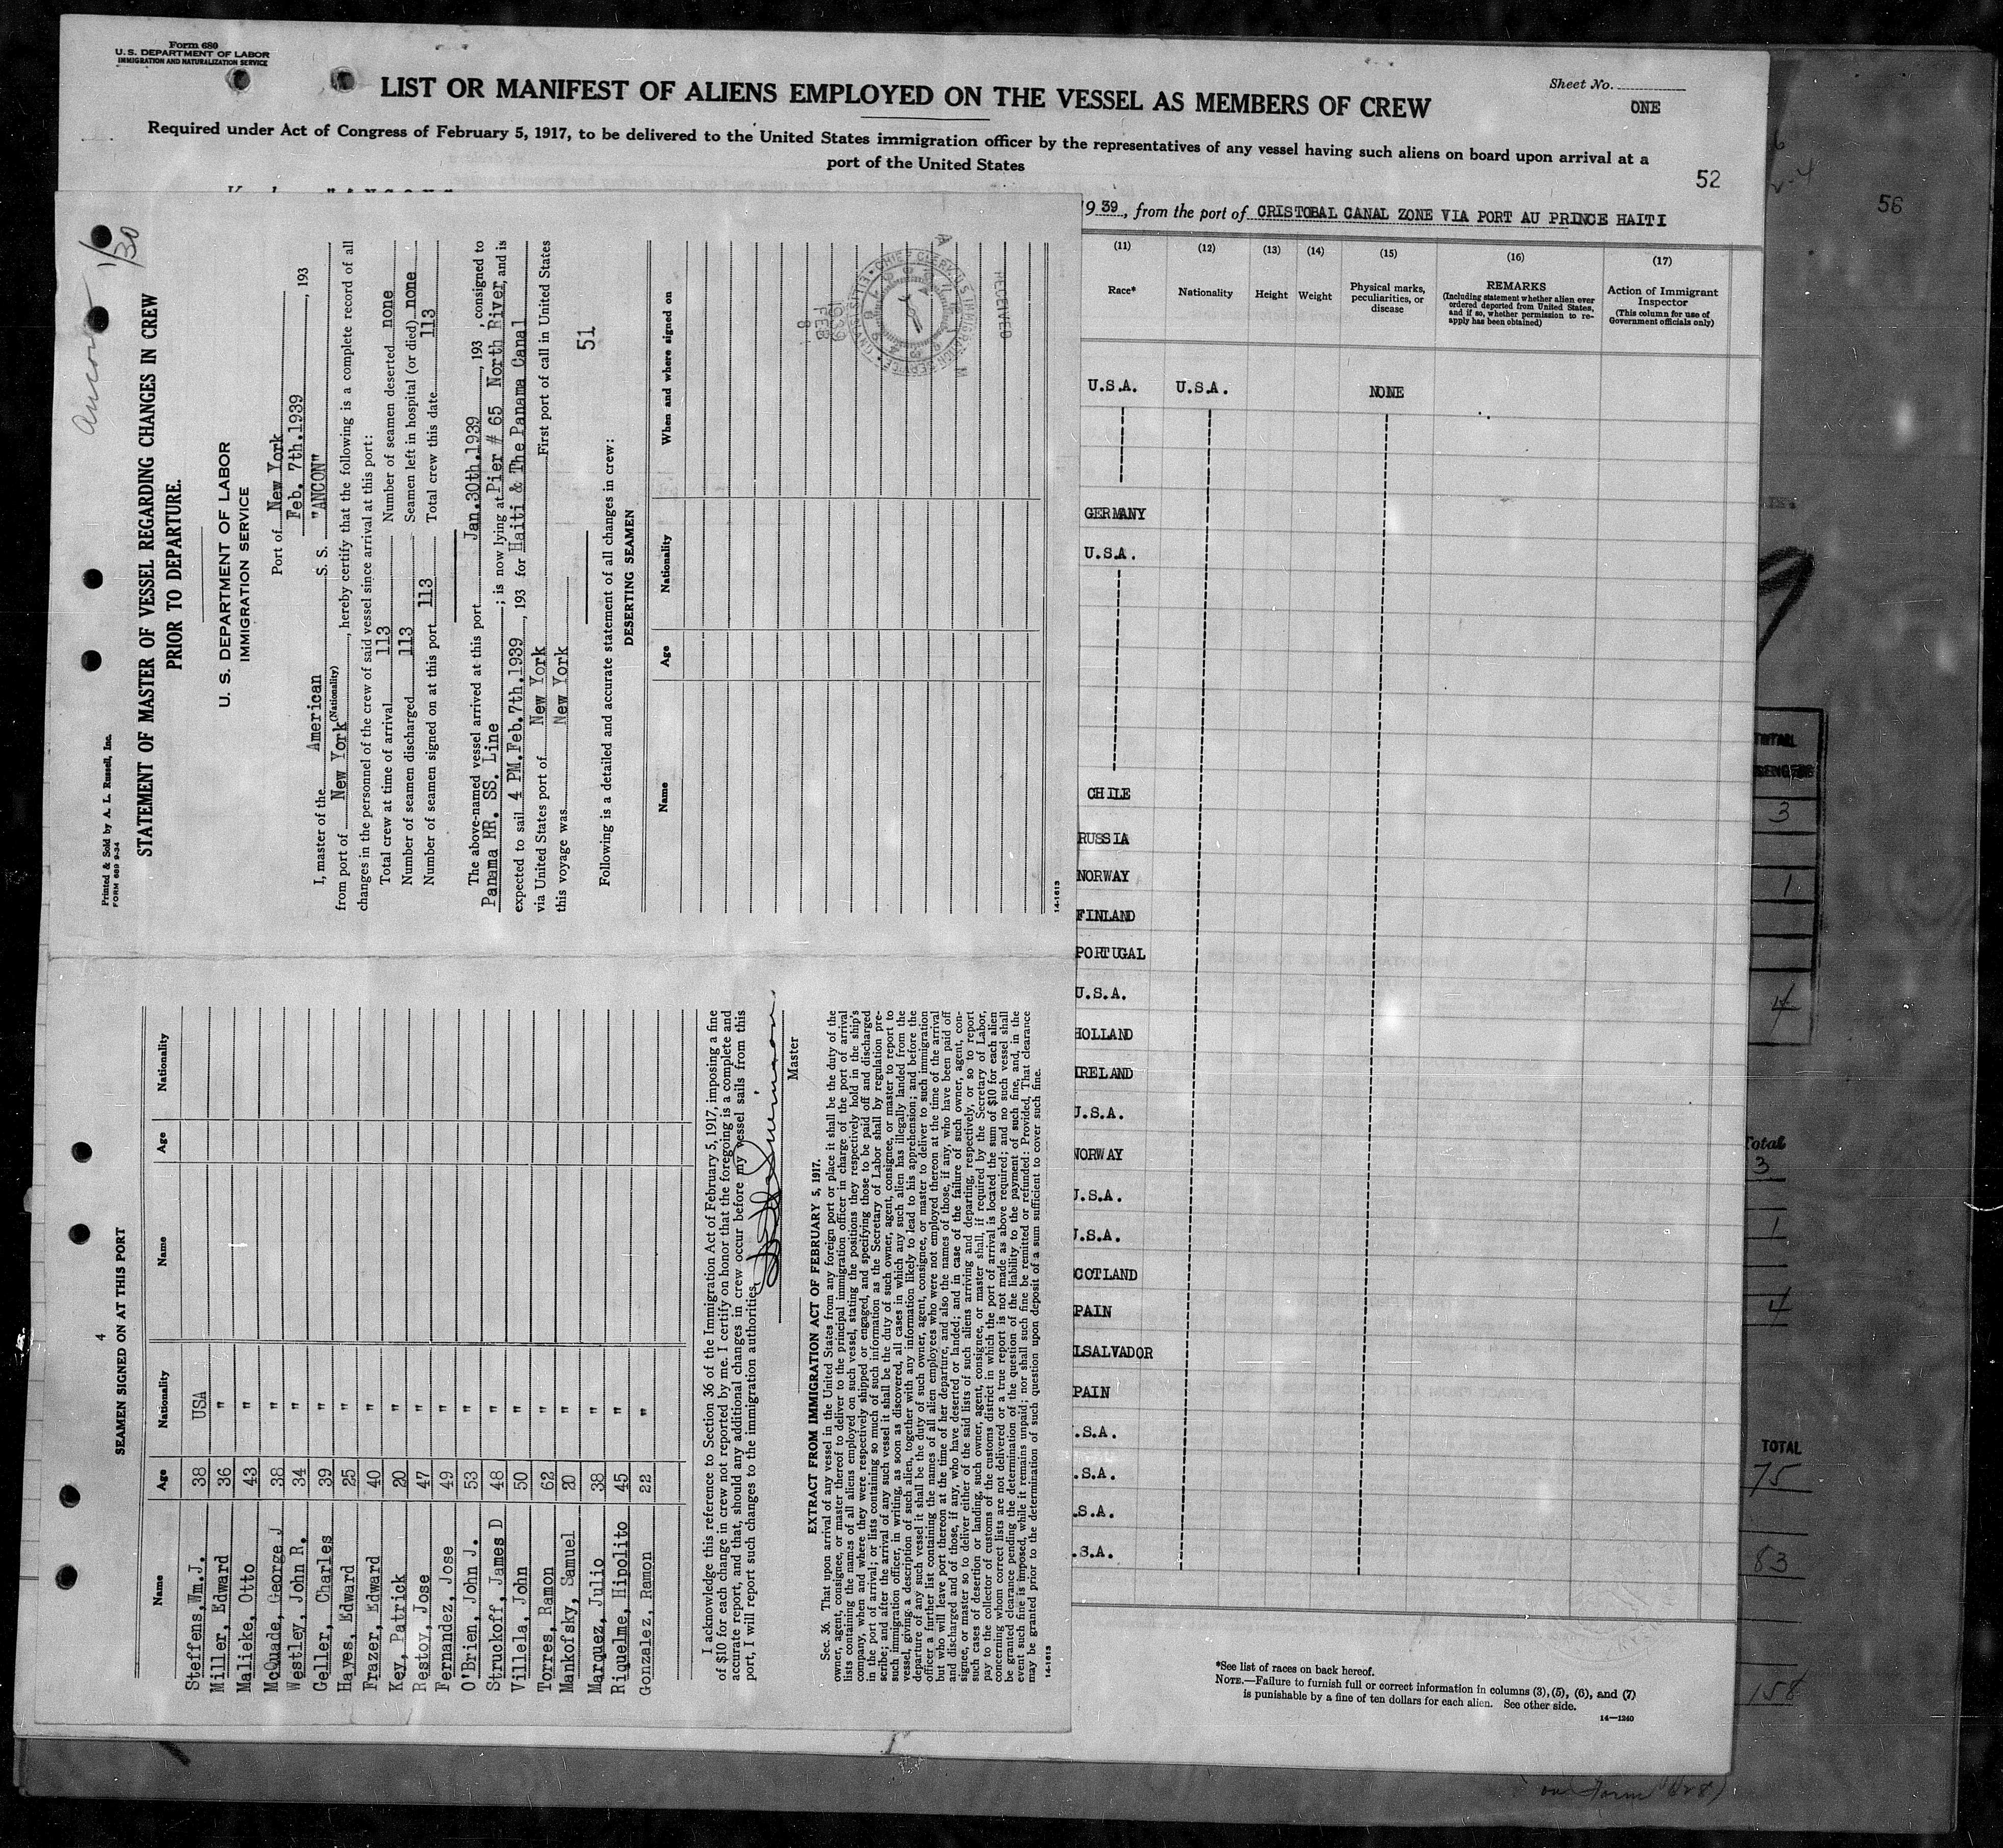 Form 680
U. S. DEPARTMENT OF LABOR
IMMIGRATION AND NATURALIZATION SERVICE
LIST OR MANIFEST OF ALIENS EMPLOYED ON THE VESSEL AS MEMBERS OF CREW
Sheet No.
ONE
Required under Act of Congress of February 5, 1917, to be delivered to the United States immigration officer by the representatives of any vessel having such aliens on board upon arrival at a
port of the United States
52
56
39, from the port of CRISTOBAL CANAL ZONE VIA PORT AU PRINCE HAITI
(11) (12) (13) (14) (15) (16) (17)
Race* Nationality Height Weight Physical marks, peculiarities, or disease REMARKS Action of Immigrant Inspector
(Including statement whether alien ever ordered deported from United States, and if so, whether permission to re-apply has been obtained)
(This column for use of Government officials only)
U.S.A. U.S.A. NONE
GERMANY
U.S.A.
CHILE
RUSSIA
NORWAY
FINLAND
PORTUGAL
U.S.A.
HOLLAND
IRELAND
U.S.A.
NORWAY
U.S.A.
U.S.A.
COTLAND
PAIN
LSALVADOR
PAIN
.S.A.
.S.A.
.S.A.
.S.A.
*See list of races on back hereof.
NOTE.—Failure to furnish full or correct information in columns (3), (5), (6), and (7)
is punishable by a fine of ten dollars for each alien. See other side.
14—1240
Printed & Sold by A. L. Russell, Inc.
FORM 689 9-34
Ancon
1/30
STATEMENT OF MASTER OF VESSEL REGARDING CHANGES IN CREW
PRIOR TO DEPARTURE.
U. S. DEPARTMENT OF LABOR
IMMIGRATION SERVICE
Port of New York
Feb. 7th.1939, 193
I, master of the American S. S. "ANCON"
(Nationality)
from port of New York, hereby certify that the following is a complete record of all
changes in the personnel of the crew of said vessel since arrival at this port:
Total crew at time of arrival 113 Number of seamen deserted none
Number of seamen discharged 113 Seamen left in hospital (or died) none
Number of seamen signed on at this port 113 Total crew this date 113
The above-named vessel arrived at this port Jan.30th.1939, 193 , consigned to
Panama RR. SS. Line ; is now lying at Pier # 65 North River, and is
expected to sail 4 PM.Feb.7th.1939, 193 for Haiti & The Panama Canal
via United States port of New York First port of call in United States
this voyage was New York
51
Following is a detailed and accurate statement of all changes in crew:
DESERTING SEAMEN
Name Age Nationality When and where signed on
RECEIVED
1939 FEB 8
CHIEF CLERK U.S. IMMIGRATION SERVICE
14-1613
4
SEAMEN SIGNED ON AT THIS PORT
Name Age Nationality Name Age Nationality
Steffens,Wm.J. 38 USA
Miller, Edward 36 "
Malieke, Otto 43 "
McQuade, George J 38 "
Westley, John R. 34 "
Geller, Charles 39 "
Hayes, Edward 25 "
Frazer, Edward 40 "
Key, Patrick 20 "
Restoy, Jose 47 "
Fernandez, Jose 49 "
O'Brien, John J. 53 "
Struckoff, James D 48 "
Villela, John 50 "
Torres, Ramon 62 "
Mankofsky, Samuel 20 "
Marquez, Julio 38 "
Riquelme, Hipolito 45 "
Gonzalez, Ramon 22 "
I acknowledge this reference to Section 36 of the Immigration Act of February 5, 1917, imposing a fine
of $10 for each change in crew not reported by me. I certify on honor that the foregoing is a complete and
accurate report, and that, should any additional changes in crew occur before my vessel sails from this
port, I will report such changes to the immigration authorities.
Master
EXTRACT FROM IMMIGRATION ACT OF FEBRUARY 5, 1917.
Sec. 36. That upon arrival of any vessel in the United States from any foreign port or place it shall be the duty of the
owner, agent, consignee, or master thereof to deliver to the principal immigration officer in charge of the port of arrival
lists containing the names of all aliens employed on such vessel, stating the positions they respectively hold in the ship's
company, when and where they were respectively shipped or engaged, and specifying those to be paid off and discharged
in the port of arrival; or lists containing so much of such information as the Secretary of Labor shall by regulation pre-
scribe; and after the arrival of any such vessel it shall be the duty of such owner, agent, consignee, or master to report to
such immigration officer, in writing, as soon as discovered, all cases in which any such alien has illegally landed from the
vessel, giving a description of such alien, together with any information likely to lead to his apprehension; and before the
departure of any such vessel it shall be the duty of such owner, agent, consignee, or master to deliver to such immigration
officer a further list containing the names of all alien employees who were not employed thereon at the time of the arrival
but who will leave port thereon at the time of her departure, and also the names of those, if any, who have been paid off
and discharged and of those, if any, who have deserted or landed; and in case of the failure of such owner, agent, con-
signee, or master so to deliver either of the said lists of such aliens arriving and departing, respectively, or so to report
such cases of desertion or landing, such owner, agent, consignee, or master shall, if required by the Secretary of Labor,
pay to the collector of customs of the customs district in which the port of arrival is located the sum of $10 for each alien
concerning whom correct lists are not delivered or a true report is not made as above required; and no such vessel shall
be granted clearance pending the determination of the question of the liability to the payment of such fine, and, in the
event such fine is imposed, while it remains unpaid; nor shall such fine be remitted or refunded: Provided, That clearance
may be granted prior to the determination of such question upon deposit of a sum sufficient to cover such fine.
14-1613
TOTAL
3
1
4
Total
3
1
4
TOTAL
75
83
158
on Form